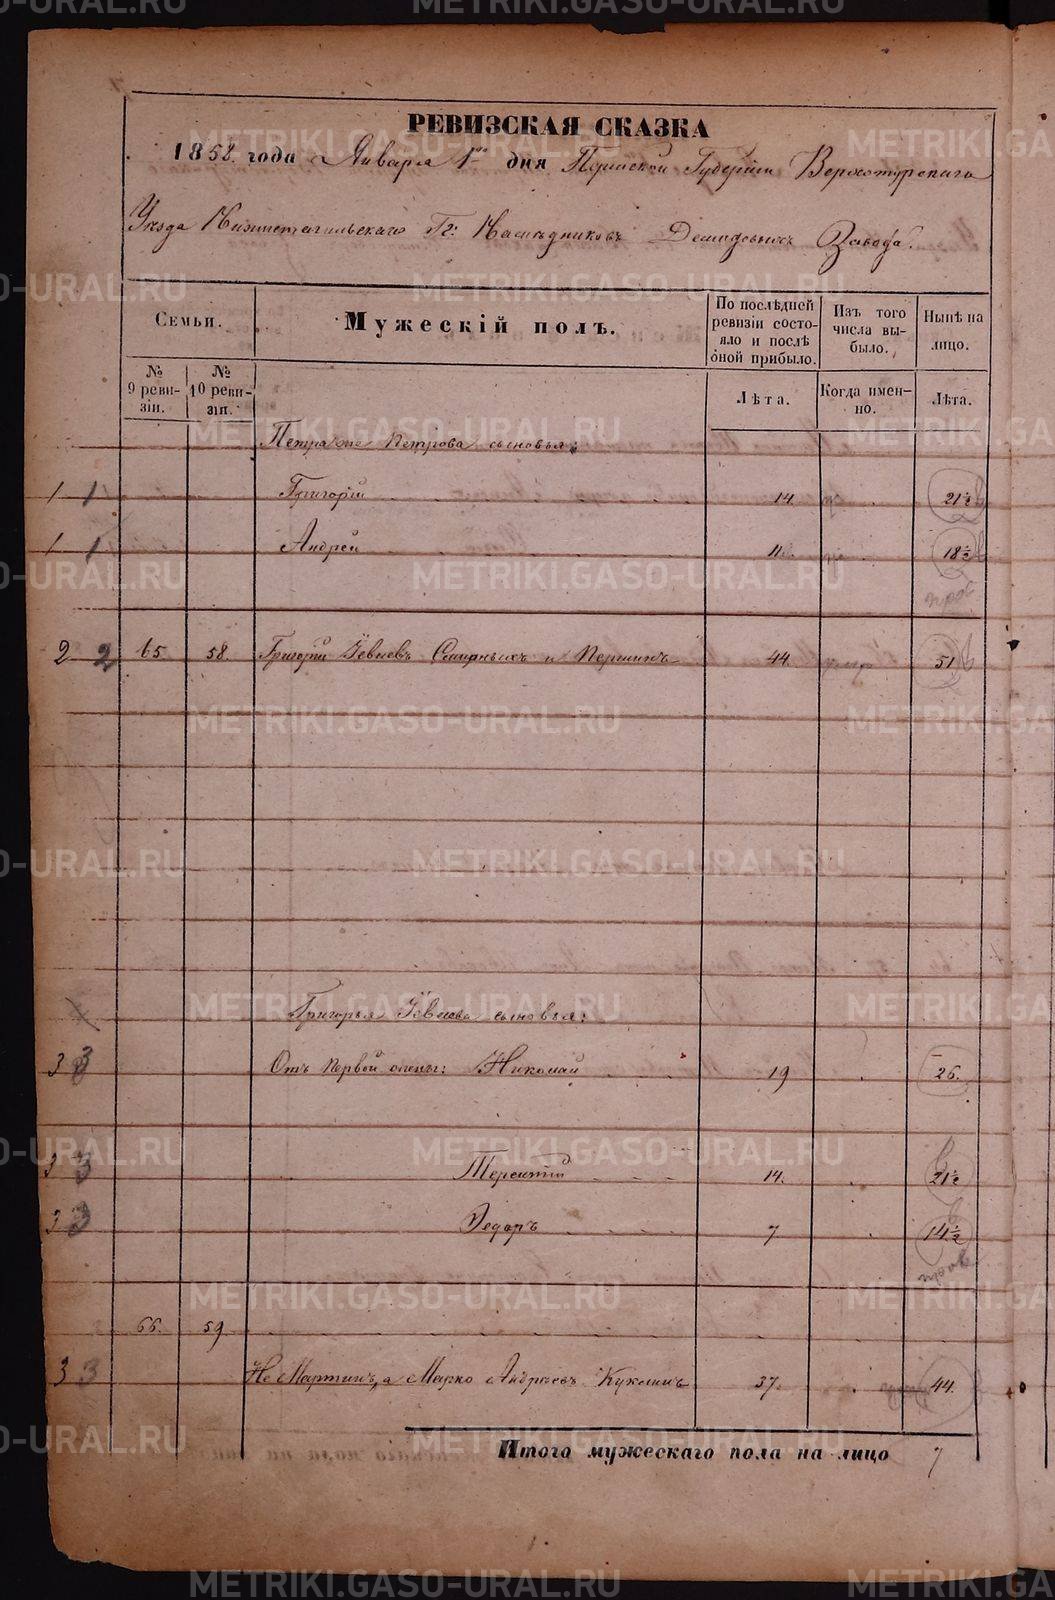 РЕВИЗСКАЯ СКАЗКА
1858. года Января 1го дня Пермской Губерніи Верхотурскаго
Уѣзда Нижнетагильскаго Гг: Наслѣдниковъ Демидовыхъ Завода.
Семьи.
№ 9 ревизіи.
№ 10 ревизіи.
Мужескій полъ.
По послѣдней ревизіи состояло и послѣ оной прибыло.
Изъ того числа выбыло.
Нынѣ на лицо.
Лѣта.
Когда именно.
Лѣта.
Петра Петрова сыновья:
1 1 Григорій 14. 21½
1 1 Андрей 11. 18½
2 2 65. 58. Григорій Іевлевъ Смирныхъ и Першинъ 44. умр 51
Григорья Іевлева сыновья:
3 3 Отъ первой жены: Николай 19 26.
3 3 Терентій 14. 21½
3 3 Ѳедоръ 7 14½
66. 59
3 3 Не Мартинъ, а Марко Андреевъ Куклинъ 37. 44.
Итого мужескаго пола на лицо 7
METRIKI.GASO-URAL.RU